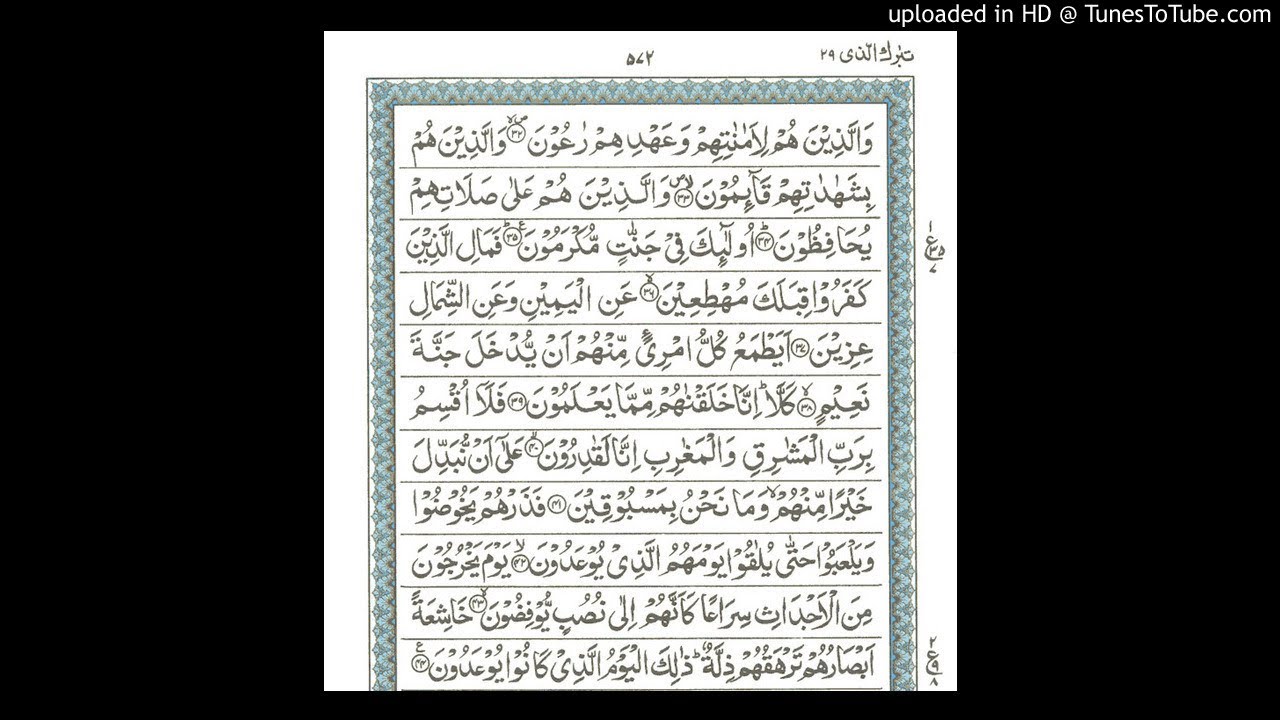 uploaded in HD @ TunesToTube.com
تبرك الذی ٢٩
٥٧٢
وَالَّذِيْنَ هُمْ لِاَمٰنٰتِهِمْ وَعَهْدِهِمْ رٰعُوْنَ ۝٣٢ وَالَّذِيْنَ هُمْ
بِشَهٰدٰتِهِمْ قَآىِٕمُوْنَ ۝٣٣ وَالَّذِيْنَ هُمْ عَلٰى صَلَاتِهِمْ
يُحَافِظُوْنَ ۝٣٤ اُولٰٓىِٕكَ فِيْ جَنّٰتٍ مُّكْرَمُوْنَ ۝٣٥ فَمَالِ الَّذِيْنَ
كَفَرُوْا قِبَلَكَ مُهْطِعِيْنَ ۝٣٦ عَنِ الْيَمِيْنِ وَعَنِ الشِّمَالِ
عِزِيْنَ ۝٣٧ اَيَطْمَعُ كُلُّ امْرِئٍ مِّنْهُمْ اَنْ يُّدْخَلَ جَنَّةَ
نَعِيْمٍ ۝٣٨ كَلَّا ؕ اِنَّا خَلَقْنٰهُمْ مِّمَّا يَعْلَمُوْنَ ۝٣٩ فَلَاۤ اُقْسِمُ
بِرَبِّ الْمَشٰرِقِ وَالْمَغٰرِبِ اِنَّا لَقٰدِرُوْنَ ۝٤٠ عَلٰۤى اَنْ نُّبَدِّلَ
خَيْرًا مِّنْهُمْ ۙ وَمَا نَحْنُ بِمَسْبُوْقِيْنَ ۝٤١ فَذَرْهُمْ يَخُوْضُوْا
وَيَلْعَبُوْا حَتّٰى يُلٰقُوْا يَوْمَهُمُ الَّذِيْ يُوْعَدُوْنَ ۝٤٢ يَوْمَ يَخْرُجُوْنَ
مِنَ الْاَجْدَاثِ سِرَاعًا كَاَنَّهُمْ اِلٰى نُصُبٍ يُّوْفِضُوْنَ ۝٤٣ خَاشِعَةً
اَبْصَارُهُمْ تَرْهَقُهُمْ ذِلَّةٌ ؕ ذٰلِكَ الْيَوْمُ الَّذِيْ كَانُوْا يُوْعَدُوْنَ ۝٤٤
١
ع ٣٥
٧
٢
ع ٩
٨